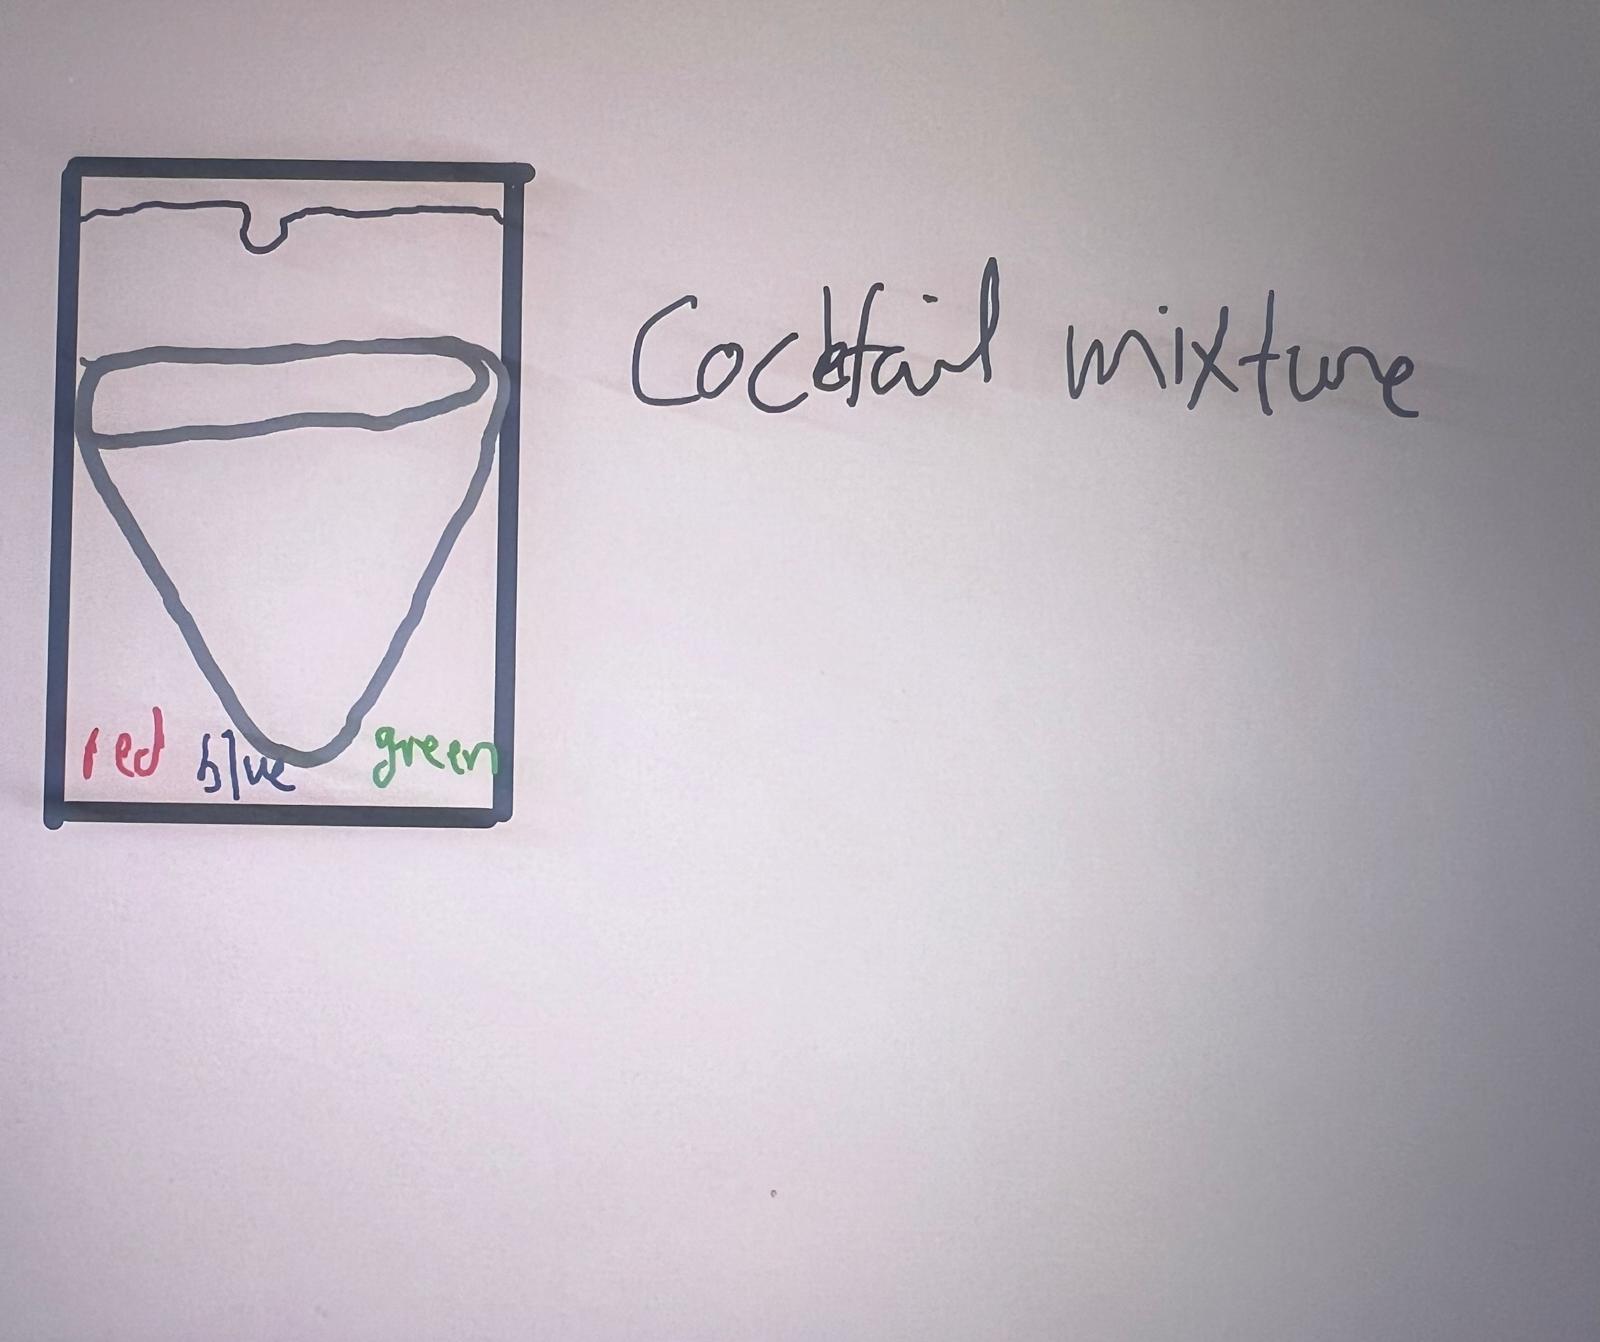 Cocktail mixture
red blue green